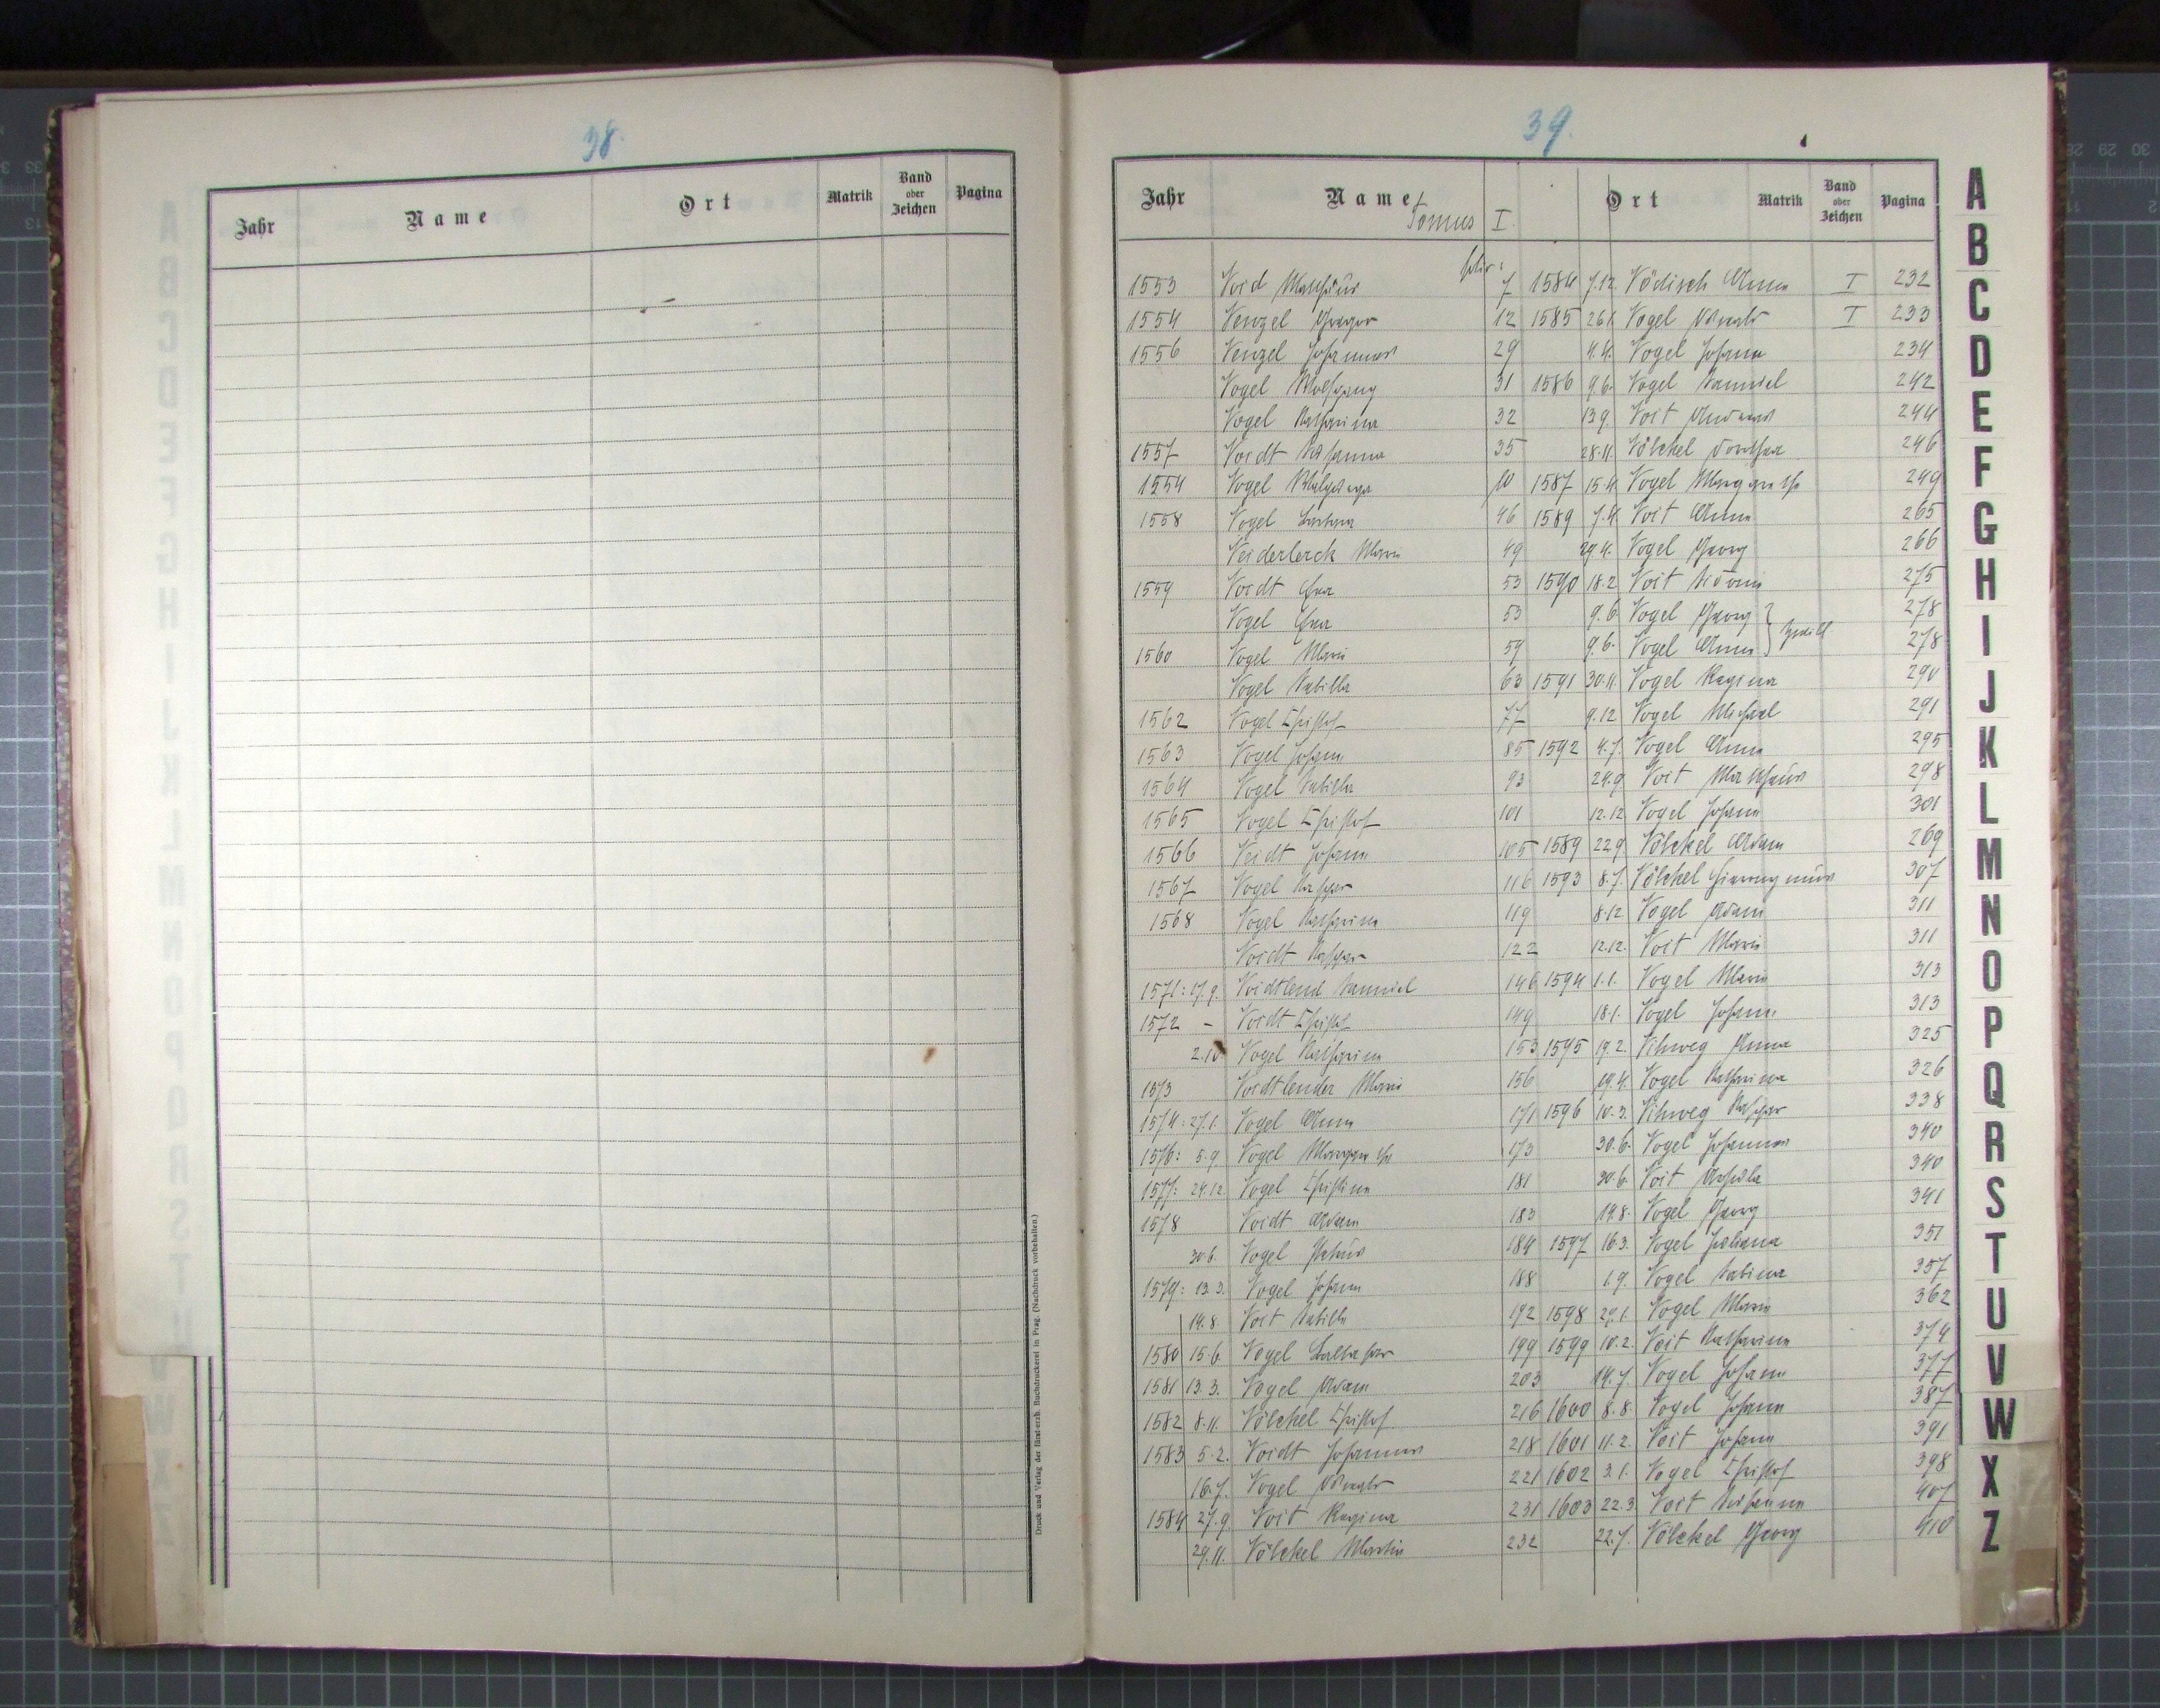 38.
Jahr Name Ort Matrik Band oder Zeichen Pagina
Druck und Verlag der fürst-erzb. Buchdruckerei in Prag. (Nachdruck vorbehalten.)
39.
Jahr Name Ort Matrik Band oder Zeichen Pagina
Tomus I.
1553 Void Matthäus 7 1584 7.12. Vödisch Anna I 232
1554 Venzel Gregor 12 1585 26.1. Vogel Oswald I 233
1556 Venzel Johannes 29 4.4. Vogel Johann 234
Vogel Wolfgang 31 1586 9.6. Vogel Samuel 242
Vogel Katharina 32 13.9. Voit Andreas 244
1557 Voidt Susanna 35 28.11. Völckel Dorothea 246
1554 Vogel 10 1587 15.4. Vogel Margareth 249
1558 Vogel Barbara 46 1589 7.4. Voit Anna 265
Veiderlerck Maria 49 29.4. Vogel Georg 266
1559 Voidt Eva 53 1590 18.2. Voit 275
Vogel Eva 53 9.6. Vogel Georg 278
1560 Vogel Maria 59 9.6. Vogel Anna 278
Vogel Sabilla 63 1591 30.11. Vogel Regina 290
1562 Vogel Christof 77 9.12. Vogel Michael 291
1563 Vogel Johann 85 1592 4.7. Vogel Anna 295
1564 Vogel Sabilla 93 24.9. Voit Matthäus 298
1565 Vogel Christof 101 12.12. Vogel Johann 301
1566 Veidt Johann 105 1589 22.9. Völckel Adam 269
1567 Vogel Kaspar 116 1593 8.7. Völckel Hieronymus 307
1568 Vogel Katharina 119 8.12. Vogel Adam 311
Voidt Kaspar 122 12.12. Voit Maria 311
1571: 17.9. Voidtlend Samuel 146 1594 1.1. Vogel Maria 313
1572 – Voidt Christof 149 18.1. Vogel Johann 313
2.10. Vogel Katharina 153 1595 19.2. Vihweg Anna 325
1573 Voidtlender Maria 156 19.4. Vogel Katharina 326
1574: 27.1. Vogel Anna 171 1596 10.3. Vihweg Kaspar 338
1576: 5.9. Vogel Margareth 173 30.6. Vogel Johannes 340
1577: 24.12. Vogel Christina 181 30.6. Voit Ursula 340
1578 Voidt Adam 183 19.8. Vogel Georg 341
30.6. Vogel Petrus 184 1597 16.3. Vogel Juliana 351
1579: 13.3. Vogel Johann 188 1.9. Vogel Sabina 357
14.8. Voit Sabilla 192 1598 29.1. Vogel Maria 362
1580 15.6. Vogel Balthasar 199 1599 10.2. Voit Katharina 374
1581 13.3. Vogel Adam 203 14.7. Vogel Johann 377
1582 8.11. Völckel Christof 216 1600 8.8. Vogel Johann 387
1583 5.2. Voidt Johannes 218 1601 11.2. Voit Johann 391
16.7. Vogel Oswald 221 1602 3.1. Vogel Christof 398
1584 27.9. Voit Regina 231 1603 22.3. Voit Susanna 407
29.11. Völckel Martin 232 22.7. Völckel Georg 410
A
B
C
D
E
F
G
H
I
J
K
L
M
N
O
P
Q
R
S
T
U
V
W
X
Z